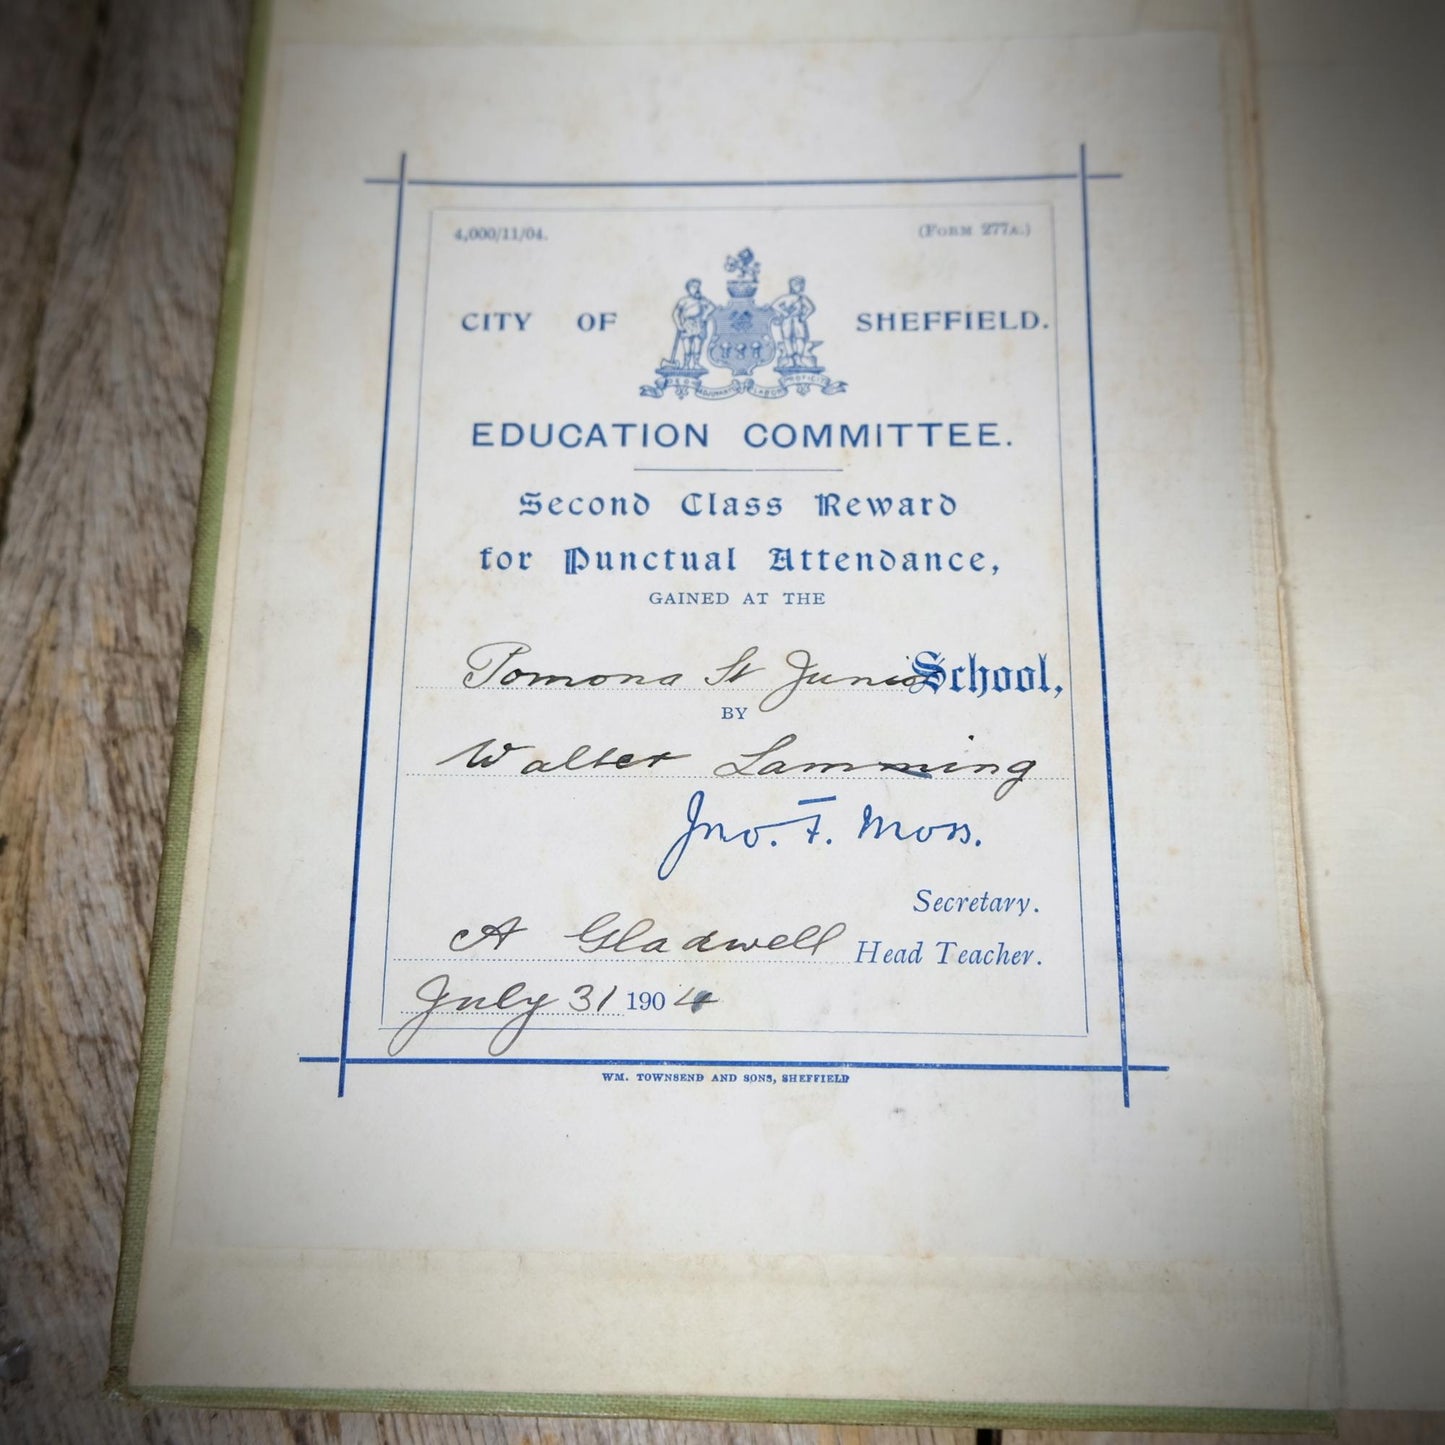 4,000/11/04. (FORM 277A.)
CITY OF SHEFFIELD.
DEO ADJUVANTE LABOR PROFICIT
EDUCATION COMMITTEE.
Second Class Reward
for Punctual Attendance,
GAINED AT THE
Pomona St Junior School,
BY
Walter Lamming
Jno. F. Moss.
Secretary.
A Gladwell Head Teacher.
July 31 1904
WM. TOWNSEND AND SONS, SHEFFIELD